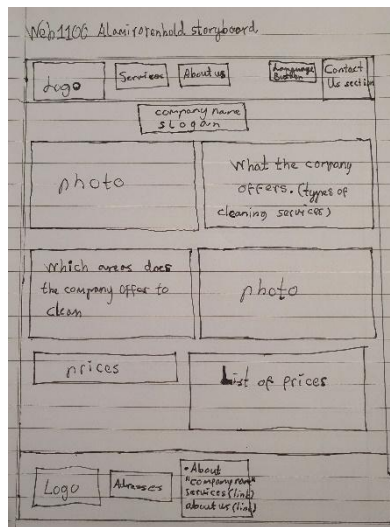 Web1100 Alamirorenhold storyboard
Logo
Services
About us
Language
Button
Contact
Us section
company name
slogan
photo
What the company
offers. (types of
cleaning services)
Which areas does
the company offer to
clean
photo
prices
List of prices
Logo
Adresses
• About
services (link)
about us (link)